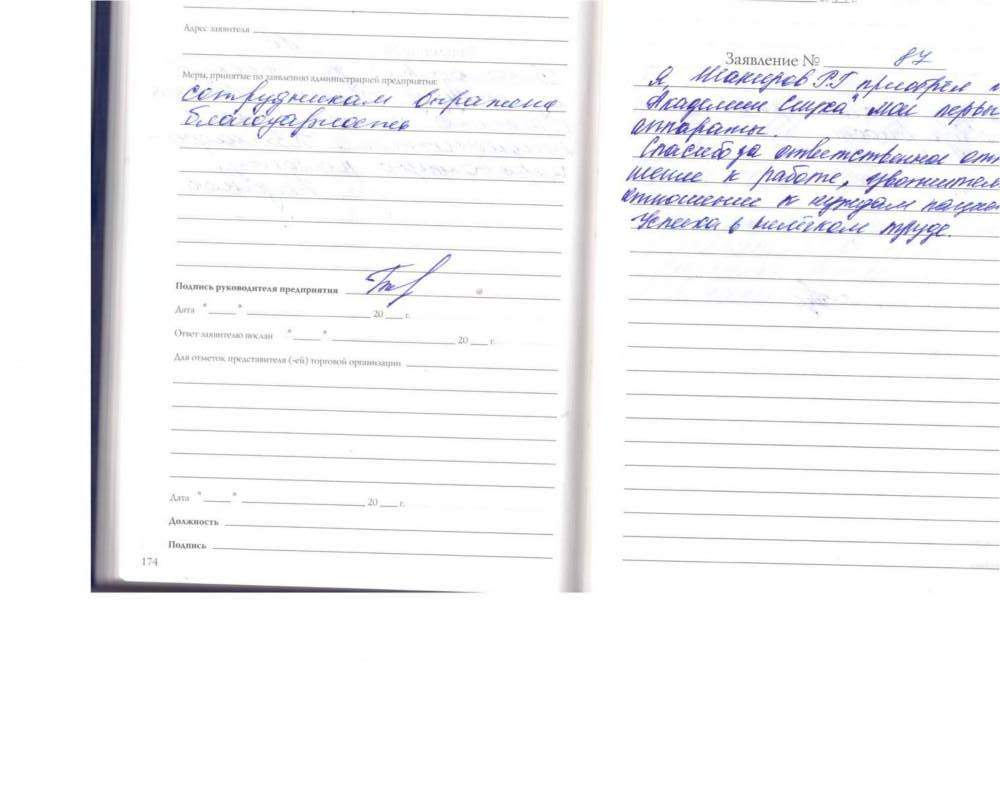 Адрес заявителя
Меры, принятые по заявлению администрацией предприятия:
сотрудникам выражена
благодарность
Подпись руководителя предприятия
Дата " " 20 г.
Ответ заявителю послан " " 20 г.
Для отметок представителя (-ей) торговой организации
Дата " " 20 г.
Должность
Подпись
174
Заявление № 87
Я, Шакиров Р.Г приобрёл
Академии Слуха" мои первы
аппараты.
Спасибо за ответственное отн
шение к работе,
отношение к нуждам
Успеха в нелёгком труде.